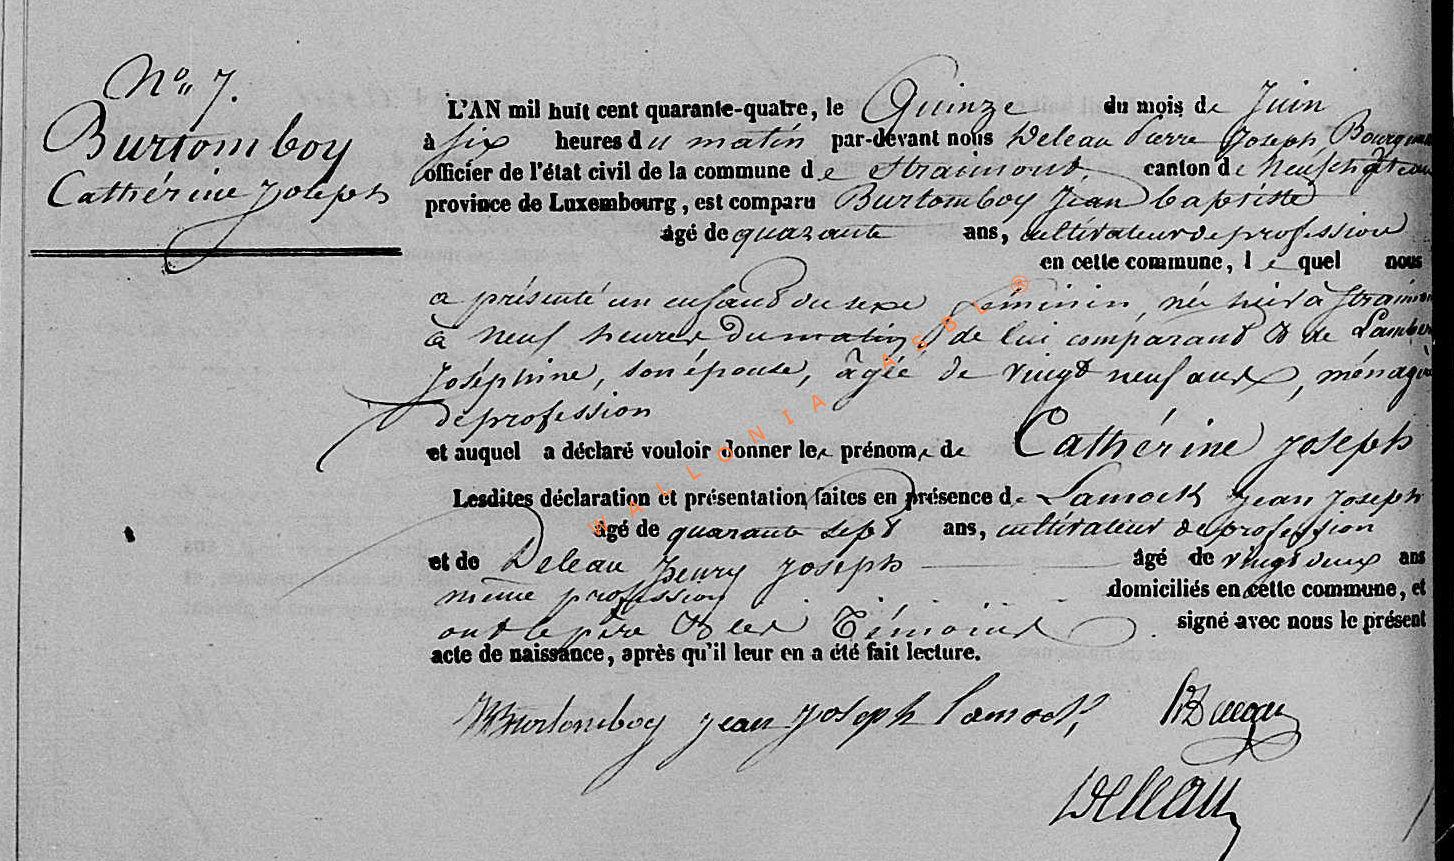 N° 7.
Burtomboy
Cathérine Joseph
L'AN mil huit cent quarante-quatre, le Quinze du mois de Juin
à six heures du matin par-devant nous Deleau Pierre Joseph, Bourgm
officier de l'état civil de la commune de Straimont, canton de Neufchateau
province de Luxembourg, est comparu Burtomboy Jean baptiste
âgé de quarante ans, cultivateur de profession
en cette commune, lequel nous
a présenté un enfant du sexe féminin, née hier à Straimon
à neuf heures du matin, de lui comparant & de Lamber
Joséphine, son épouse, âgée de vingt neuf ans, ménagè
de profession
et auquel a déclaré vouloir donner les prénoms de Cathérine Joseph
Lesdites déclaration et présentation faites en présence de Lamock Jean Joseph
âgé de quarante sept ans, cultivateur de profession
et de Deleau henry Joseph âgé de vingt deux ans
même profession domiciliés en cette commune, et
ont le père & les Témoins signé avec nous le présent
acte de naissance, après qu'il leur en a été fait lecture.
Burtomboy Jean Joseph Lamock
Deleau
WALLONIA ASBL ®